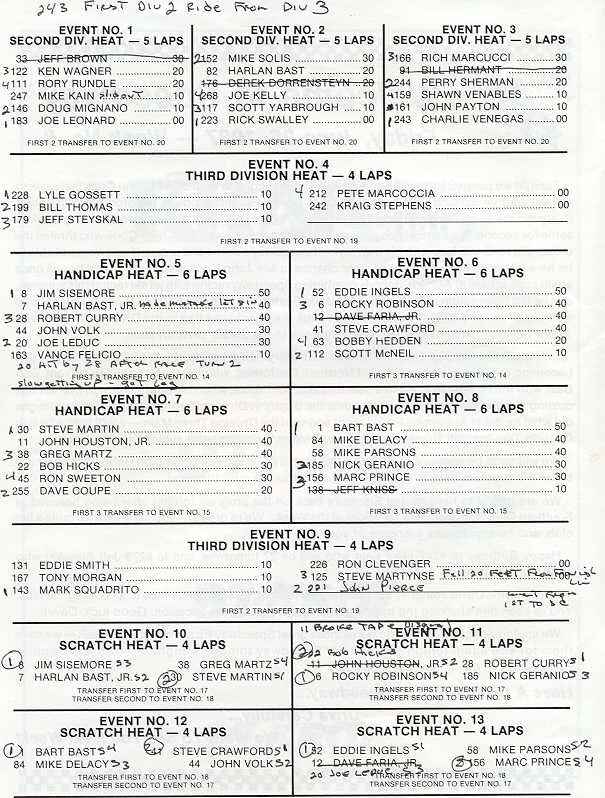 243 FIRST DIV 2 RIDE FROM DIV 3
EVENT NO. 1
SECOND DIV. HEAT — 5 LAPS
33 JEFF BROWN 30
3 122 KEN WAGNER 20
4 111 RORY RUNDLE 20
247 MIKE KAIN slideout 20
2 146 DOUG MIGNANO 10
1 183 JOE LEONARD 00
FIRST 2 TRANSFER TO EVENT NO. 20
EVENT NO. 2
SECOND DIV. HEAT — 5 LAPS
2 152 MIKE SOLIS 30
82 HARLAN BAST 20
176 DEREK DORRENSTEYN 20
4 268 JOE KELLY 10
3 117 SCOTT YARBROUGH 10
1 223 RICK SWALLEY 00
FIRST 2 TRANSFER TO EVENT NO. 20
EVENT NO. 3
SECOND DIV. HEAT — 5 LAPS
3 166 RICH MARCUCCI 20
91 BILL HERMANT 20
2 244 PERRY SHERMAN 20
4 159 SHAWN VENABLES 10
161 JOHN PAYTON 10
1 243 CHARLIE VENEGAS 00
FIRST 2 TRANSFER TO EVENT NO. 20
EVENT NO. 4
THIRD DIVISION HEAT — 4 LAPS
1 228 LYLE GOSSETT 10
2 199 BILL THOMAS 10
3 179 JEFF STEYSKAL 10
4 212 PETE MARCOCCIA 00
242 KRAIG STEPHENS 00
FIRST 2 TRANSFER TO EVENT NO. 19
EVENT NO. 5
HANDICAP HEAT — 6 LAPS
1 8 JIM SISEMORE 50
7 HARLAN BAST, JR. made mistake let 8 in 40
3 28 ROBERT CURRY 40
44 JOHN VOLK 30
2 20 JOE LEDUC 20
163 VANCE FELICIO 10
20 HIT by 28 AFTER RACE TURN 2
FIRST 3 TRANSFER TO EVENT NO. 14
slow getting up - got leg
EVENT NO. 6
HANDICAP HEAT — 6 LAPS
1 52 EDDIE INGELS 50
3 6 ROCKY ROBINSON 40
12 DAVE FARIA, JR. 40
41 STEVE CRAWFORD 40
4 63 BOBBY HEDDEN 20
2 112 SCOTT McNEIL 10
FIRST 3 TRANSFER TO EVENT NO. 14
EVENT NO. 7
HANDICAP HEAT — 6 LAPS
1 30 STEVE MARTIN 40
11 JOHN HOUSTON, JR. 40
3 38 GREG MARTZ 40
22 BOB HICKS 30
4 45 RON SWEETON 30
2 255 DAVE COUPE 20
FIRST 3 TRANSFER TO EVENT NO. 15
EVENT NO. 8
HANDICAP HEAT — 6 LAPS
1 1 BART BAST 50
84 MIKE DELACY 40
58 MIKE PARSONS 40
185 NICK GERANIO 30
156 MARC PRINCE 30
138 JEFF KNISS 10
FIRST 3 TRANSFER TO EVENT NO. 15
EVENT NO. 9
THIRD DIVISION HEAT — 4 LAPS
131 EDDIE SMITH 10
167 TONY MORGAN 10
1 143 MARK SQUADRITO 10
226 RON CLEVENGER 00
3 125 STEVE MARTYNSE Fell 20 FEET FROM Finish Line 00
2 221 John Pierce went from 1ST TO 3rd
FIRST 2 TRANSFER TO EVENT NO. 19
EVENT NO. 10
SCRATCH HEAT — 4 LAPS
1 8 JIM SISEMORE S3 38 GREG MARTZ S4
7 HARLAN BAST, JR. S2 2 30 STEVE MARTIN S1
TRANSFER FIRST TO EVENT NO. 17
TRANSFER SECOND TO EVENT NO. 18
11 BROKE TAPE Disqual
EVENT NO. 11
SCRATCH HEAT — 4 LAPS
2 22 Bob HICKS
11 JOHN HOUSTON, JR. S2 28 ROBERT CURRY S1
1 6 ROCKY ROBINSON S4 185 NICK GERANIO S3
TRANSFER FIRST TO EVENT NO. 17
TRANSFER SECOND TO EVENT NO. 18
EVENT NO. 12
SCRATCH HEAT — 4 LAPS
1 1 BART BAST S4 2 41 STEVE CRAWFORD S1
84 MIKE DELACY S3 44 JOHN VOLK S2
TRANSFER FIRST TO EVENT NO. 18
TRANSFER SECOND TO EVENT NO. 17
EVENT NO. 13
SCRATCH HEAT — 4 LAPS
1 52 EDDIE INGELS S1 58 MIKE PARSONS S2
12 DAVE FARIA, JR. 2 156 MARC PRINCE S4
20 JOE LEDUC S3
TRANSFER FIRST TO EVENT NO. 18
TRANSFER SECOND TO EVENT NO. 17